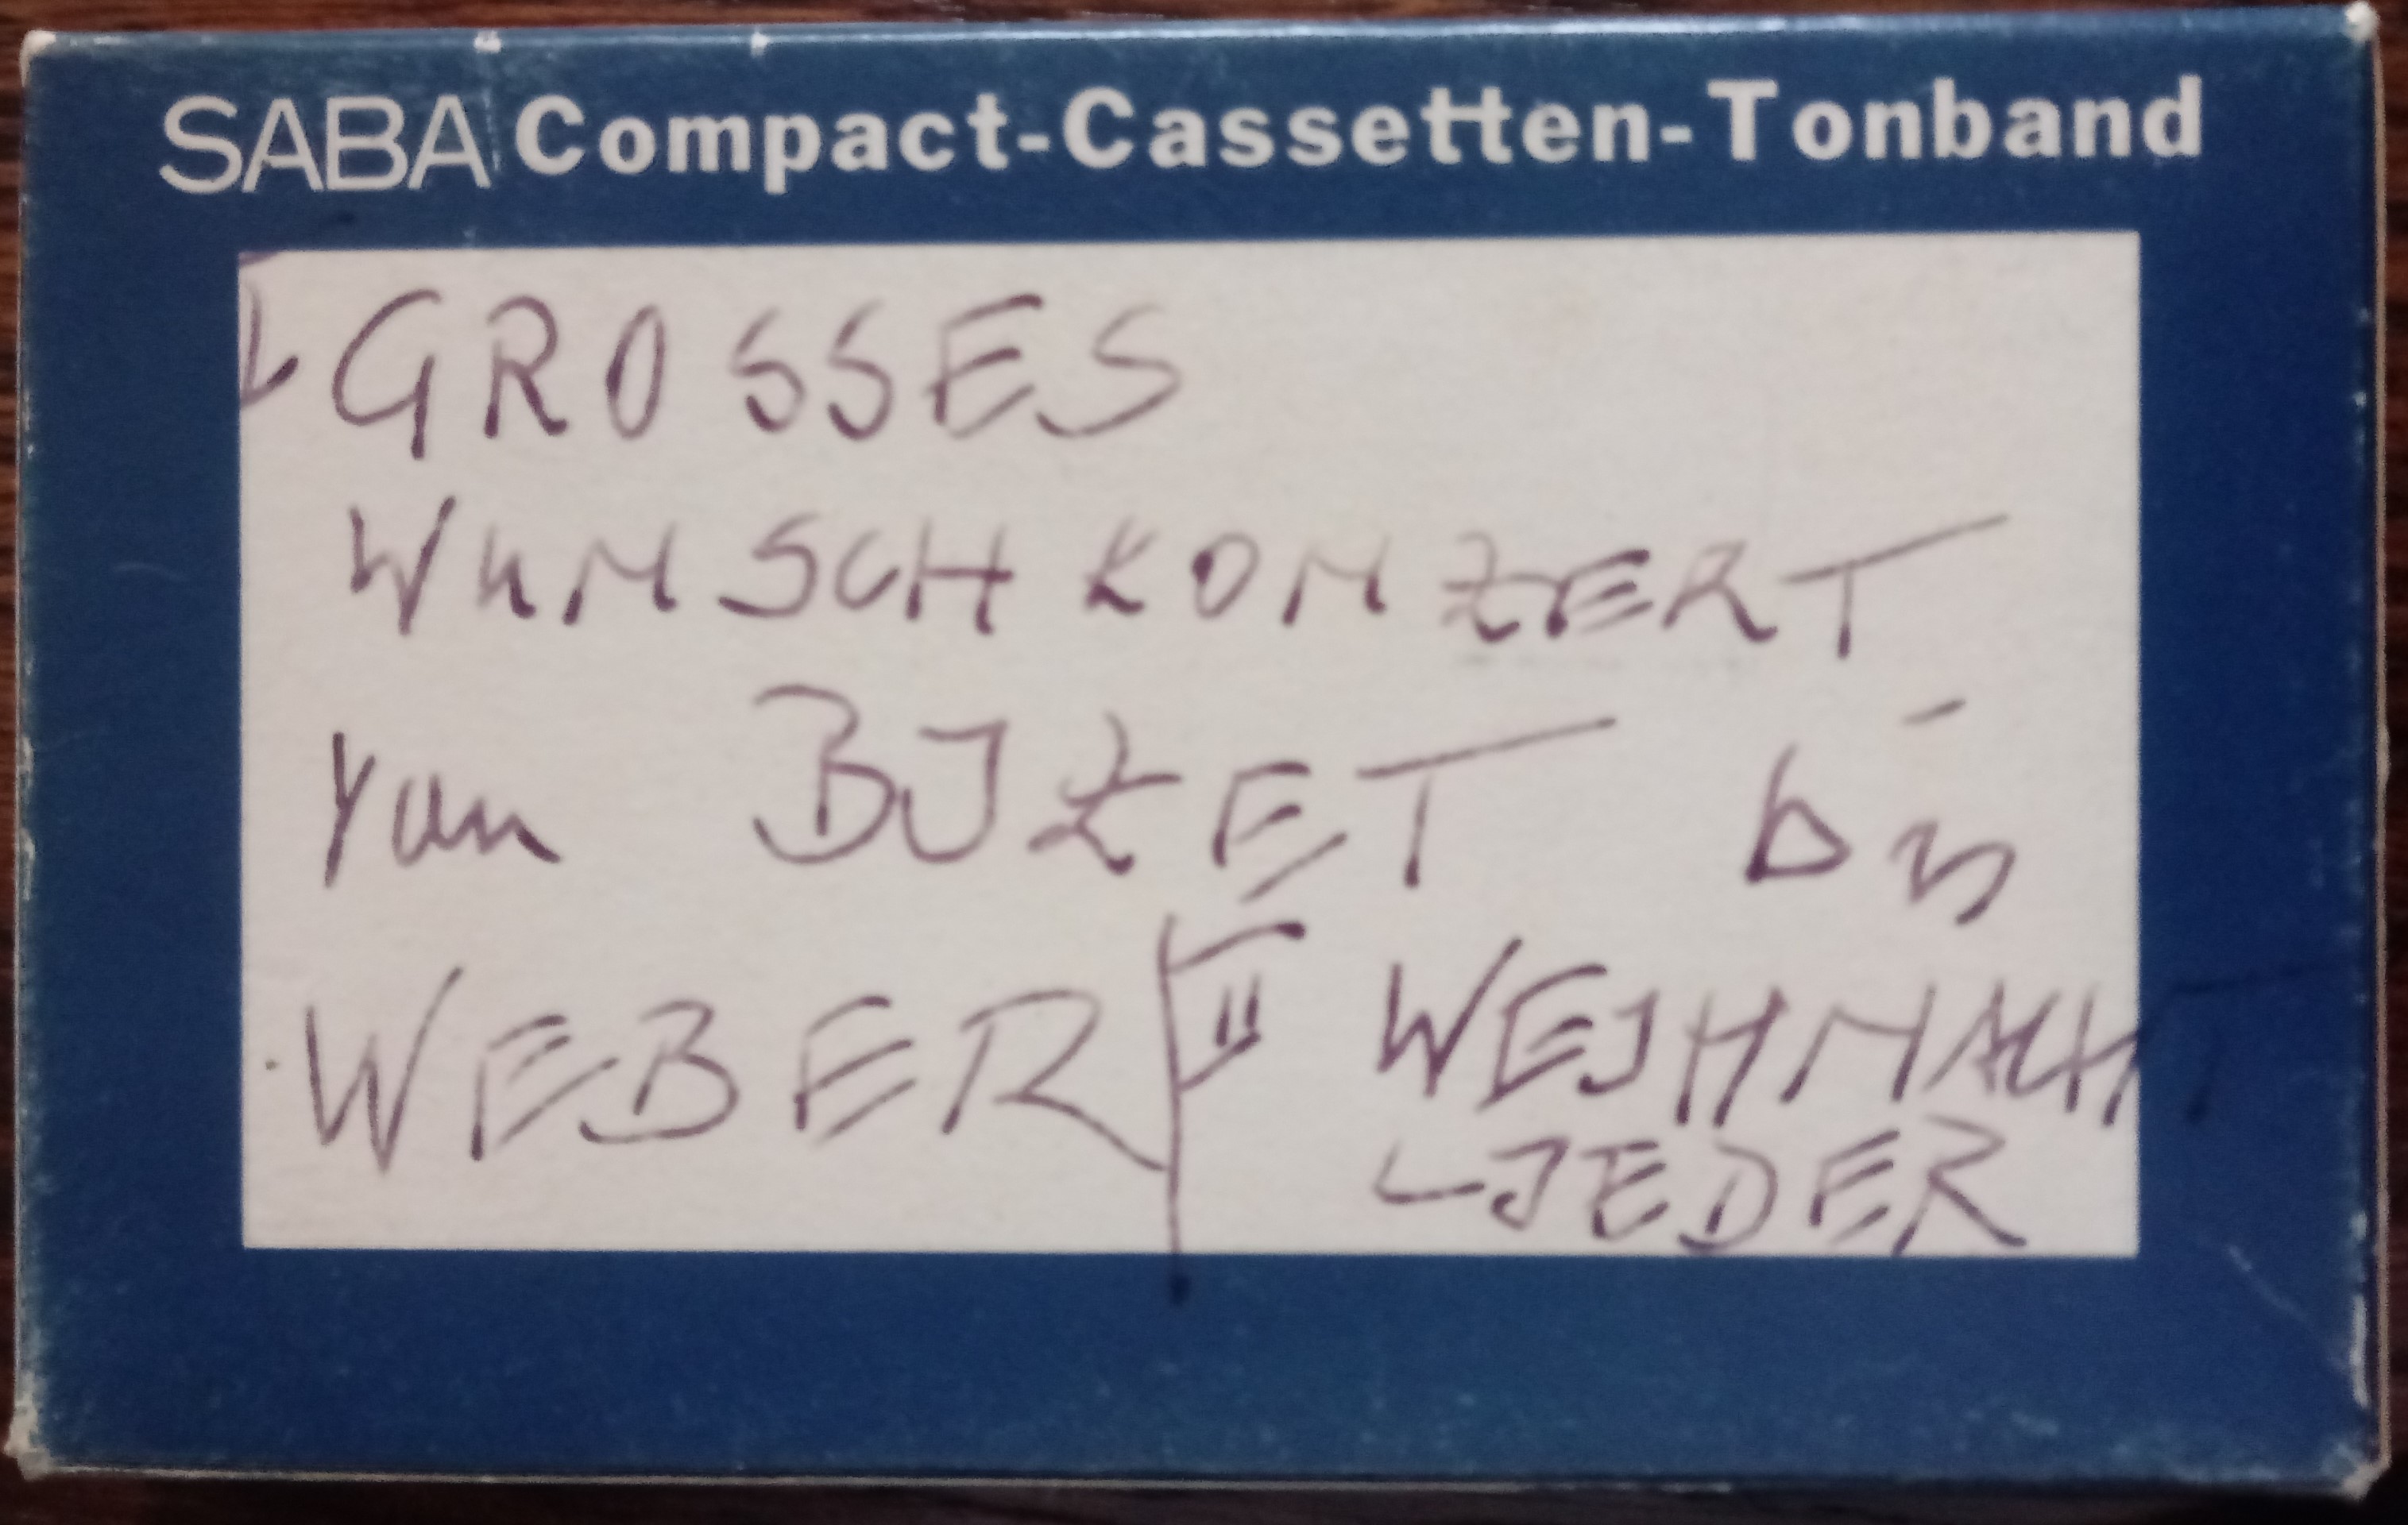 SABA Compact-Cassetten-Tonband
GROSSES
WUNSCHKONZERT
von BIZET bis
WEBER II WEIHNACHT
LIEDER